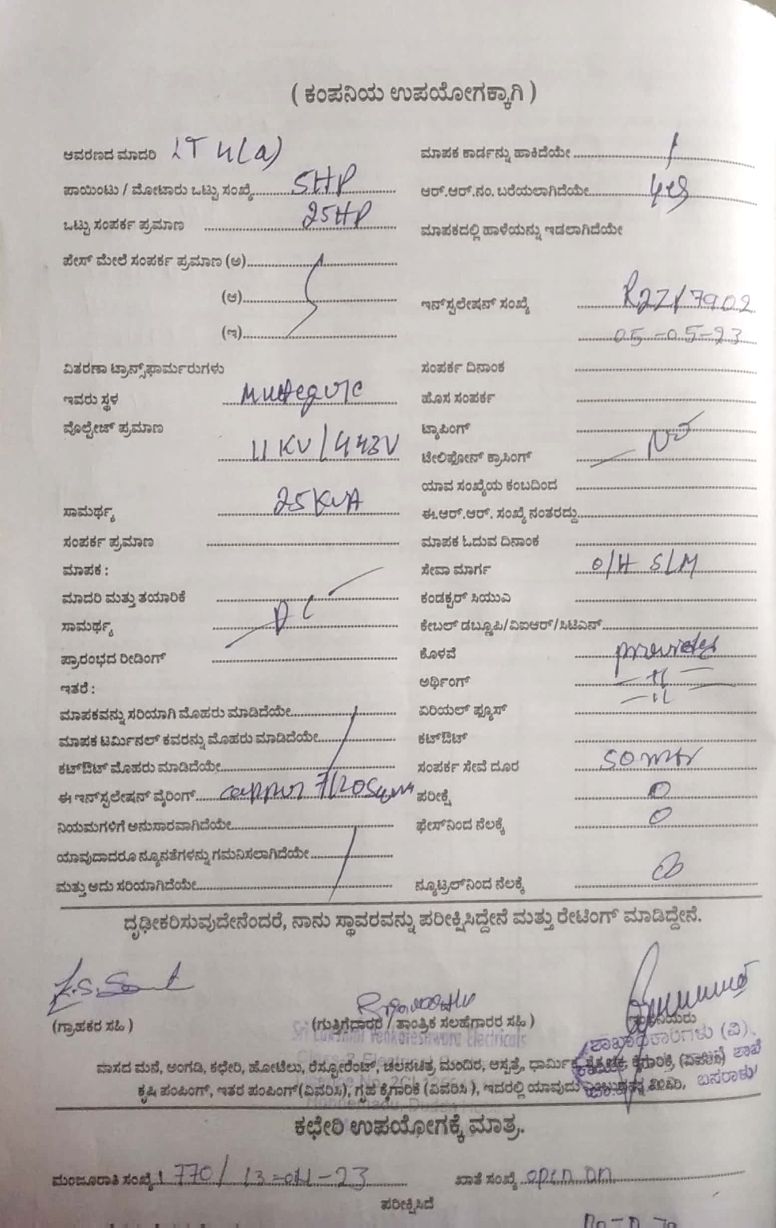 ( ಕಂಪನಿಯ ಉಪಯೋಗಕ್ಕಾಗಿ )
ಆವರಣದ ಮಾದರಿ LT 4(a)
ಪಾಯಿಂಟು / ಮೋಟಾರು ಒಟ್ಟು ಸಂಖ್ಯೆ 5HP
ಒಟ್ಟು ಸಂಪರ್ಕ ಪ್ರಮಾಣ 25HP
ಪೇಸ್ ಮೇಲೆ ಸಂಪರ್ಕ ಪ್ರಮಾಣ (ಅ)
(ಆ)
(ಇ)
ವಿತರಣಾ ಟ್ರಾನ್ಸ್‌ಫಾರ್ಮರುಗಳು
ಇವರು ಸ್ಥಳ
ವೊಲ್ಟೇಜ್ ಪ್ರಮಾಣ 11 KV / 443V
ಸಾಮರ್ಥ್ಯ 25 KVA
ಸಂಪರ್ಕ ಪ್ರಮಾಣ
ಮಾಪಕ :
ಮಾದರಿ ಮತ್ತು ತಯಾರಿಕೆ
ಸಾಮರ್ಥ್ಯ DC
ಪ್ರಾರಂಭದ ರೀಡಿಂಗ್
ಇತರೆ :
ಮಾಪಕವನ್ನು ಸರಿಯಾಗಿ ಮೊಹರು ಮಾಡಿದೆಯೇ
ಮಾಪಕ ಟರ್ಮಿನಲ್ ಕವರನ್ನು ಮೊಹರು ಮಾಡಿದೆಯೇ
ಕಟ್‌ಔಟ್ ಮೊಹರು ಮಾಡಿದೆಯೇ
ಈ ಇನ್‌ಸ್ಟಲೇಷನ್ ವೈರಿಂಗ್
ನಿಯಮಗಳಿಗೆ ಅನುಸಾರವಾಗಿದೆಯೇ
ಯಾವುದಾದರೂ ನ್ಯೂನತೆಗಳನ್ನು ಗಮನಿಸಲಾಗಿದೆಯೇ
ಮತ್ತು ಅದು ಸರಿಯಾಗಿದೆಯೇ
ಮಾಪಕ ಕಾರ್ಡನ್ನು ಹಾಕಿದೆಯೇ
ಆರ್.ಆರ್.ನಂ. ಬರೆಯಲಾಗಿದೆಯೇ yes
ಮಾಪಕದಲ್ಲಿ ಹಾಳೆಯನ್ನು ಇಡಲಾಗಿದೆಯೇ
ಇನ್‌ಸ್ಟಲೇಷನ್ ಸಂಖ್ಯೆ
05-05-23
ಸಂಪರ್ಕ ದಿನಾಂಕ
ಹೊಸ ಸಂಪರ್ಕ
ಟ್ಯಾಪಿಂಗ್
ಟೆಲಿಫೋನ್ ಕ್ರಾಸಿಂಗ್ NO
ಯಾವ ಸಂಖ್ಯೆಯ ಕಂಬದಿಂದ
ಈ.ಆರ್.ಆರ್. ಸಂಖ್ಯೆ ನಂತರದ್ದು
ಮಾಪಕ ಓದುವ ದಿನಾಂಕ
ಸೇವಾ ಮಾರ್ಗ O/H SLM
ಕಂಡಕ್ಟರ್ ಸಿಯುಎ
ಕೇಬಲ್ ಡಬ್ಲೂಪಿ/ವಿಐಆರ್/ಸಿಟಿಎಸ್
ಕೊಳವೆ
ಅರ್ಥಿಂಗ್
ಏರಿಯಲ್ ಫ್ಯೂಸ್
ಕಟ್‌ಔಟ್
ಸಂಪರ್ಕ ಸೇವೆ ದೂರ 50 mtr
ಪರೀಕ್ಷೆ 0
ಫೇಸ್‌ನಿಂದ ನೆಲಕ್ಕೆ 0
ನ್ಯೂಟ್ರಲ್‌ನಿಂದ ನೆಲಕ್ಕೆ
ದೃಢೀಕರಿಸುವುದೇನೆಂದರೆ, ನಾನು ಸ್ಥಾವರವನ್ನು ಪರೀಕ್ಷಿಸಿದ್ದೇನೆ ಮತ್ತು ರೇಟಿಂಗ್ ಮಾಡಿದ್ದೇನೆ.
(ಗ್ರಾಹಕರ ಸಹಿ )
(ಗುತ್ತಿಗೆದಾರರ / ತಾಂತ್ರಿಕ ಸಲಹೆಗಾರರ ಸಹಿ )
Sri Lakshmi Venkateshwara Electricals
ಶಾಖಾಧಿಕಾರಿಗಳು (ವಿ),
ವಾಸದ ಮನೆ, ಅಂಗಡಿ, ಕಛೇರಿ, ಹೋಟೆಲು, ರೆಸ್ಟೋರೆಂಟ್, ಚಲನಚಿತ್ರ ಮಂದಿರ, ಆಸ್ಪತ್ರೆ, ಧಾರ್ಮಿಕ, ಶೈಕ್ಷಣಿಕ, ಕೈಗಾರಿಕೆ, (ವಿವರಿಸಿ)
ಕೃಷಿ ಪಂಪಿಂಗ್, ಇತರ ಪಂಪಿಂಗ್ (ವಿವರಿಸಿ), ಗೃಹ ಕೈಗಾರಿಕೆ (ವಿವರಿಸಿ ), ಇದರಲ್ಲಿ ಯಾವುದು
ಬಸರಾಳು
ಕಛೇರಿ ಉಪಯೋಗಕ್ಕೆ ಮಾತ್ರ.
ಮಂಜೂರಾತಿ ಸಂಖ್ಯೆ 770 / 13-04-23
ಖಾತೆ ಸಂಖ್ಯೆ open on
ಪರೀಕ್ಷಿಸಿದೆ